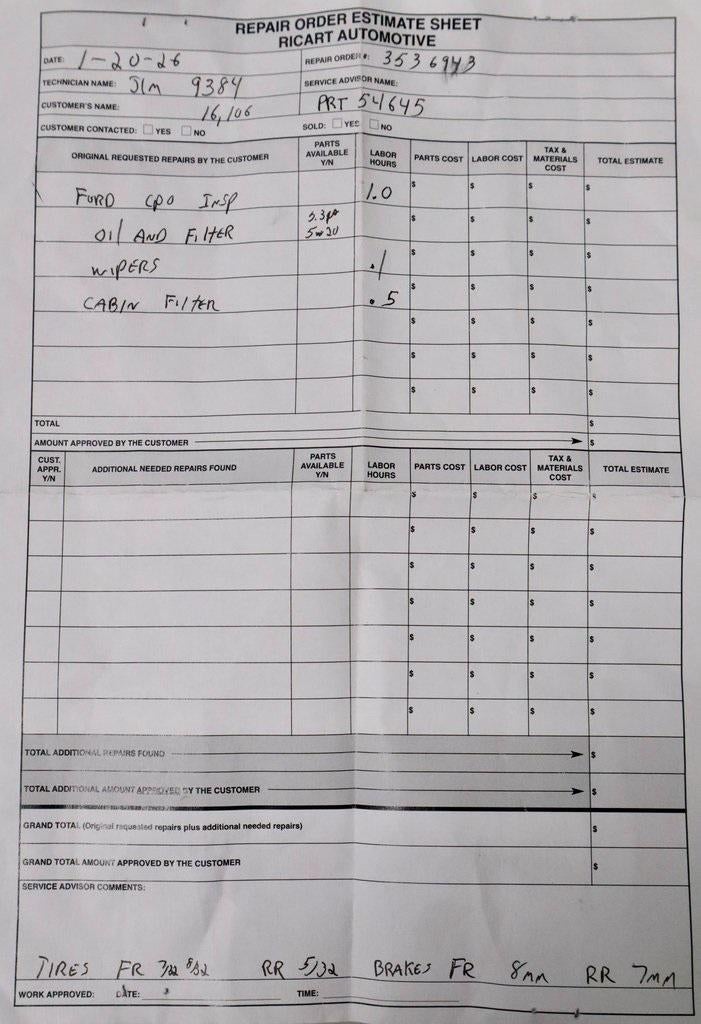 REPAIR ORDER ESTIMATE SHEET
RICART AUTOMOTIVE
DATE: 1-20-26 REPAIR ORDER #: 3536943
TECHNICIAN NAME: Jim 9384 SERVICE ADVISOR NAME:
CUSTOMER'S NAME: 16,106 PRT 54645
CUSTOMER CONTACTED: YES NO SOLD: YES NO
ORIGINAL REQUESTED REPAIRS BY THE CUSTOMER PARTS AVAILABLE Y/N LABOR HOURS PARTS COST LABOR COST TAX & MATERIALS COST TOTAL ESTIMATE
FORD CPO INSP 1.0 $ $ $ $
OIl AND FIlTER 5w20 $ $ $ $
WIPERS .1 $ $ $ $
CABIN FIlTER .5 $ $ $ $
$ $ $ $
$ $ $ $
$ $ $ $
TOTAL $
AMOUNT APPROVED BY THE CUSTOMER $
CUST. APPR. Y/N ADDITIONAL NEEDED REPAIRS FOUND PARTS AVAILABLE Y/N LABOR HOURS PARTS COST LABOR COST TAX & MATERIALS COST TOTAL ESTIMATE
$ $ $ $
$ $ $ $
$ $ $ $
$ $ $ $
$ $ $ $
$ $ $ $
$ $ $ $
TOTAL ADDITIONAL REPAIRS FOUND $
TOTAL ADDITIONAL AMOUNT APPROVED BY THE CUSTOMER $
GRAND TOTAL (Original requested repairs plus additional needed repairs) $
GRAND TOTAL AMOUNT APPROVED BY THE CUSTOMER $
SERVICE ADVISOR COMMENTS:
TIRES FR 8/32 RR 5/32 BRAKES FR 8MM RR 7MM
WORK APPROVED: DATE: TIME: